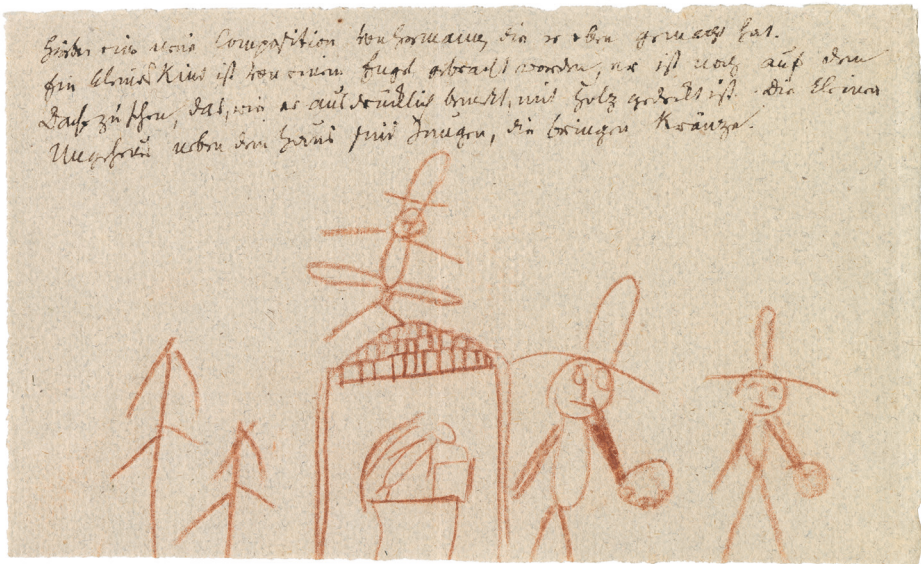 Hier eine neue Composition von Hermann, die er eben gemacht hat.
Ein kleines Kind ist von einem Engel gebracht worden, er ist noch auf dem
Dach zu sehen, das, wie er ausdrücklich bemerkt, mit Holz gedeckt ist. Die kleinen
Ungeheuer neben dem Haus sind Jungen, die bringen Kränze.